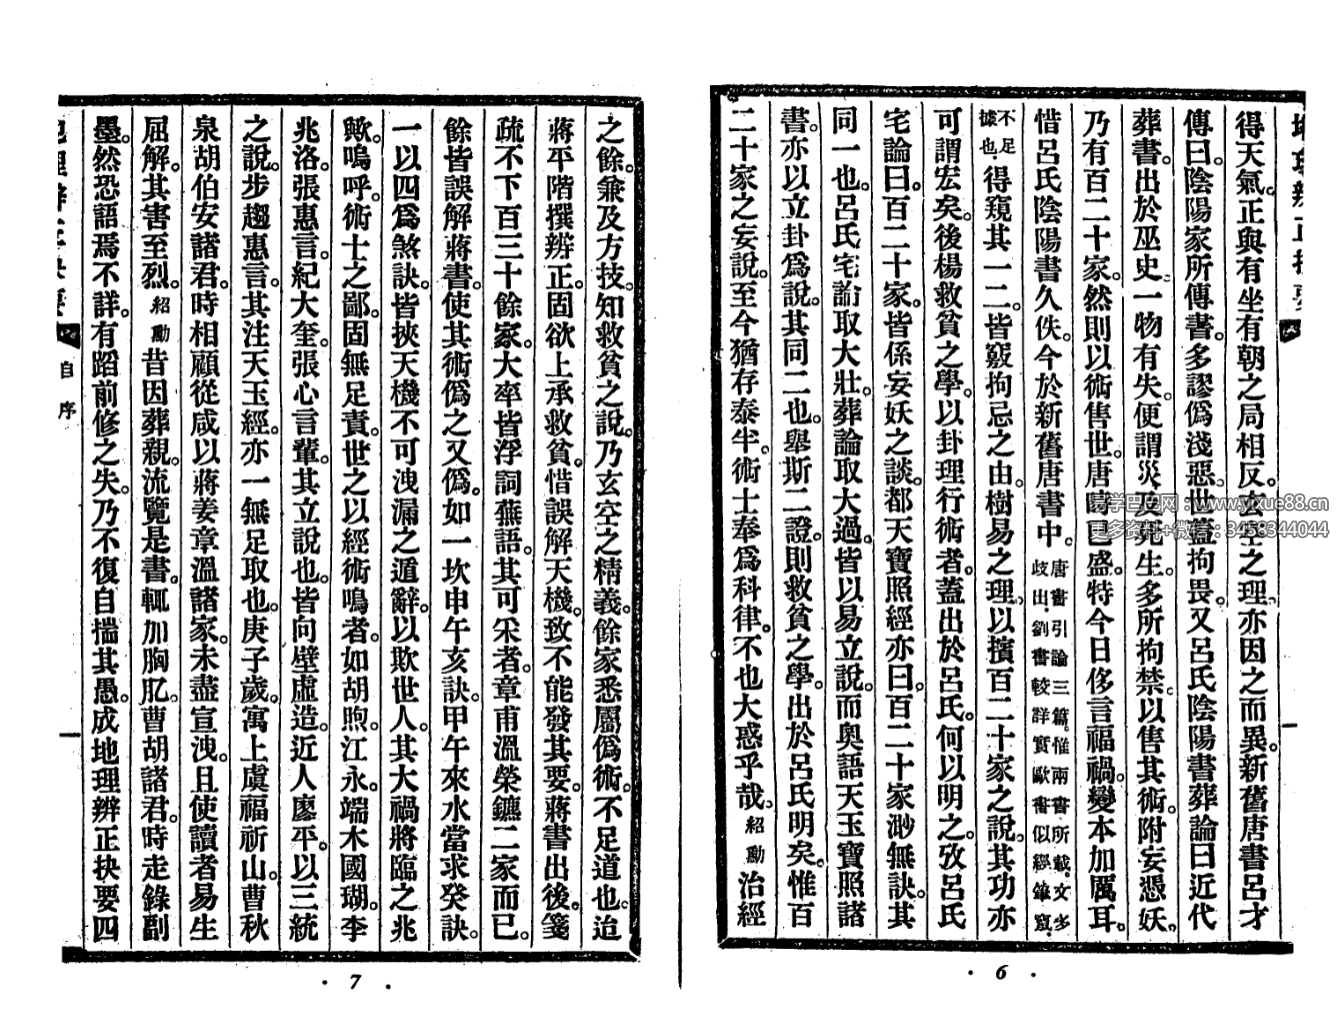 得天氣。正與有坐有朝之局相反。玄空之理。亦因之而異。新舊唐書呂才
傳曰。陰陽家所傳書。多謬僞淺惡。世蓋拘畏。又呂氏陰陽書葬論曰近代
葬書。出於巫史。一物有失。便謂災及死生。多所拘禁。以售其術。附妄憑妖。
乃有百二十家。然則以術售世。唐時已盛。特今日侈言福禍。變本加厲耳。
惜呂氏陰陽書久佚。今於新舊唐書中。唐書引論三篇。惟兩書所載。文多
歧出。劉書較詳實歐書似經鎔竄。
不足
據也。得窺其一二。皆竅拘忌之由。樹易之理。以擯百二十家之說。其功亦
可謂宏矣。後楊救貧之學。以卦理行術者。蓋出於呂氏。何以明之。攷呂氏
宅論曰。百二十家。皆係妄妖之談。都天寶照經亦曰。百二十家渺無訣。其
同一也。呂氏宅論取大壯。葬論取大過。皆以易立說。而奧語天玉寶照諸
書。亦以立卦爲說。其同二也。舉斯二證。則救貧之學。出於呂氏明矣。惟百
二十家之妄說。至今猶存泰半。術士奉爲科律。不也大惑乎哉。紹勳治經
地理辨正抉要
一
· 6 ·
之餘。兼及方技。知救貧之說。乃玄空之精義。餘家悉屬僞術。不足道也。迨
蔣平階撰辨正。固欲上承救貧。惜誤解天機。致不能發其要。蔣書出後。箋
疏不下百三十餘家。大率皆浮詞蕪語。其可采者。章甫溫榮鑣二家而已。
餘皆誤解蔣書。使其術僞之又僞。如一坎申午亥訣。甲午來水當求癸訣。
一以四爲煞訣。皆挾天機不可洩漏之遁辭。以欺世人。其大禍將臨之兆
歟。嗚呼。術士之鄙。固無足責。世之以經術鳴者。如胡煦。江永。端木國瑚。李
兆洛。張惠言。紀大奎。張心言輩。其立說也。皆向壁虛造。近人廖平。以三統
之說。步趨惠言。其注天玉經。亦一無足取也。庚子歲。寓上虞福祈山。曹秋
泉胡伯安諸君。時相顧從。咸以蔣姜章溫諸家。未盡宣洩。且使讀者易生
屈解。其害至烈。紹勳昔因葬親。流覽是書。輒加胸肊。曹胡諸君。時走錄副
墨。然恐語焉不詳。有蹈前修之失。乃不復自揣其愚。成地理辨正抉要四
地理辨正抉要
自序
一
· 7 ·
易学巴巴网：www.yixue88.cn
更多资料+微信：3458344044